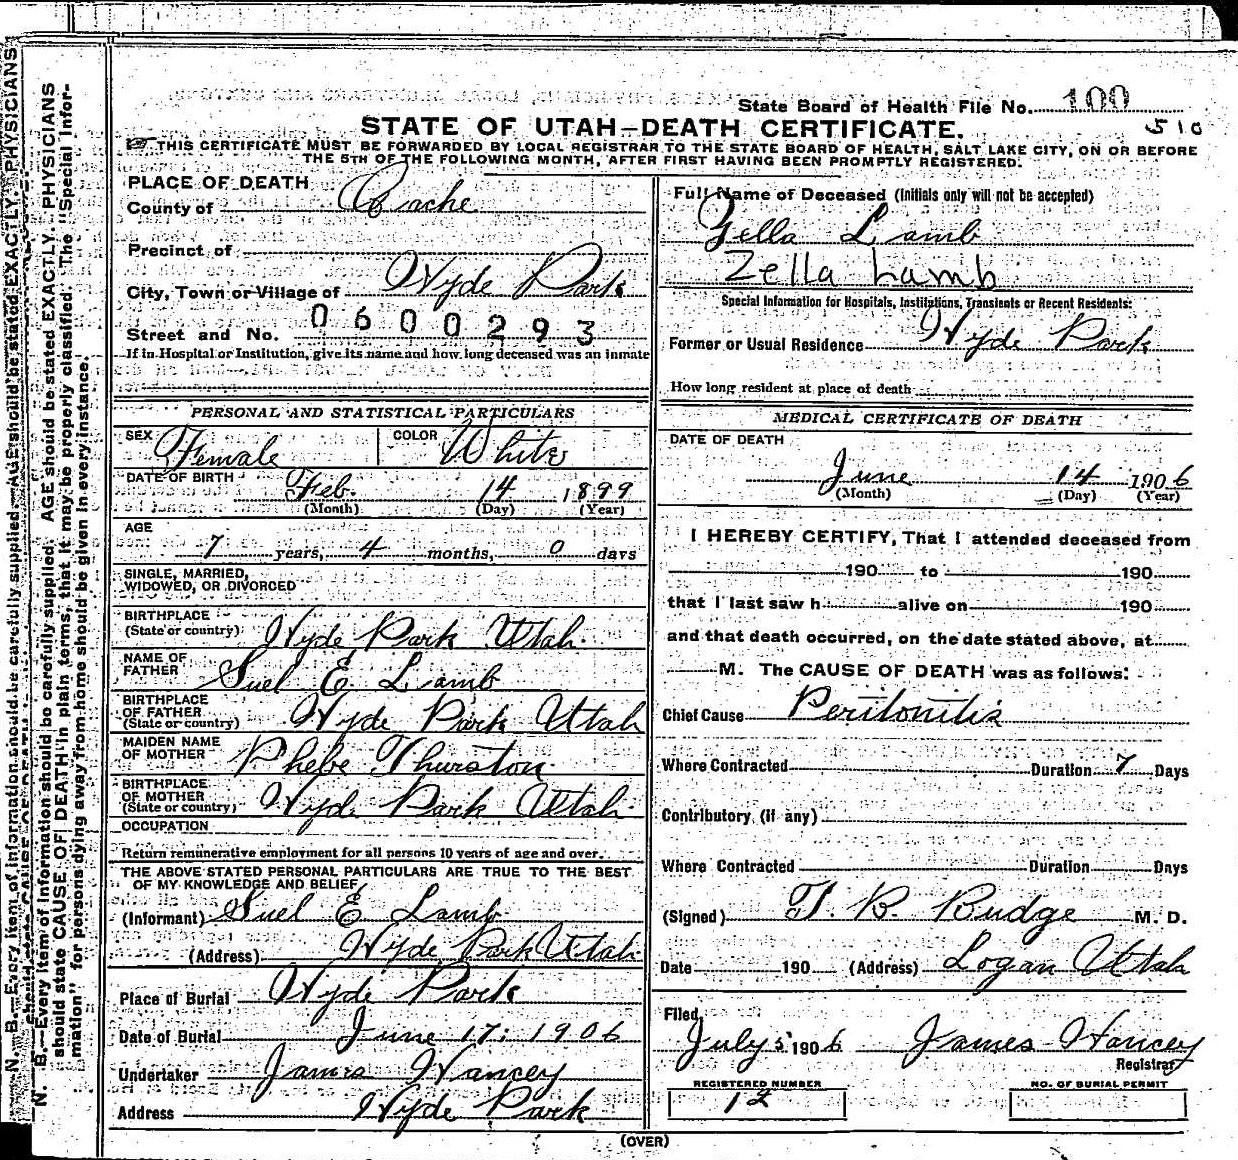 State Board of Health File No. 100
510
STATE OF UTAH—DEATH CERTIFICATE.
THIS CERTIFICATE MUST BE FORWARDED BY LOCAL REGISTRAR TO THE STATE BOARD OF HEALTH, SALT LAKE CITY, ON OR BEFORE
THE 5TH OF THE FOLLOWING MONTH, AFTER FIRST HAVING BEEN PROMPTLY REGISTERED.
PLACE OF DEATH
County of Cache
Precinct of
City, Town or Village of Hyde Park
0600293
Street and No.
If in Hospital or Institution, give its name and how long deceased was an inmate
Full Name of Deceased (Initials only will not be accepted)
Zella Lamb
Zella Lamb
Special Information for Hospitals, Institutions, Transients or Recent Residents:
Former or Usual Residence Hyde Park
How long resident at place of death
PERSONAL AND STATISTICAL PARTICULARS
SEX Female COLOR White
DATE OF BIRTH Feb. 14 1899
(Month) (Day) (Year)
AGE
7 years, 4 months, 0 days
SINGLE, MARRIED,
WIDOWED, OR DIVORCED
BIRTHPLACE
(State or country) Hyde Park Utah.
NAME OF
FATHER Suel E. Lamb
BIRTHPLACE
OF FATHER
(State or country) Hyde Park Utah
MAIDEN NAME
OF MOTHER Phebe Thurston.
BIRTHPLACE
OF MOTHER
(State or country) Hyde Park Utah.
OCCUPATION
Return remunerative employment for all persons 10 years of age and over.
THE ABOVE STATED PERSONAL PARTICULARS ARE TRUE TO THE BEST
OF MY KNOWLEDGE AND BELIEF
(Informant) Suel E. Lamb
(Address) Hyde Park Utah
Place of Burial Hyde Park
Date of Burial June 17: 1906
Undertaker James Hancey
Address Hyde Park
MEDICAL CERTIFICATE OF DEATH
DATE OF DEATH
June 14 1906
(Month) (Day) (Year)
I HEREBY CERTIFY, That I attended deceased from
190 to 190
that I last saw h alive on 190
and that death occurred, on the date stated above, at
M. The CAUSE OF DEATH was as follows:
Chief Cause Peritonitis
Where Contracted Duration 7 Days
Contributory (if any)
Where Contracted Duration Days
(Signed) T. B. Budge M. D.
Date 190 (Address) Logan Utah
Filed
July 5 1906 James Hancey
Registrar
REGISTERED NUMBER
12
NO. OF BURIAL PERMIT
(OVER)
N. B.—Every item of information should be carefully supplied. AGE should be stated EXACTLY. PHYSICIANS
should state CAUSE OF DEATH in plain terms, that it may be properly classified. The "Special Infor-
mation" for persons dying away from home should be given in every instance.
N. B.—Every item of information should be carefully supplied. AGE should be stated EXACTLY. PHYSICIANS